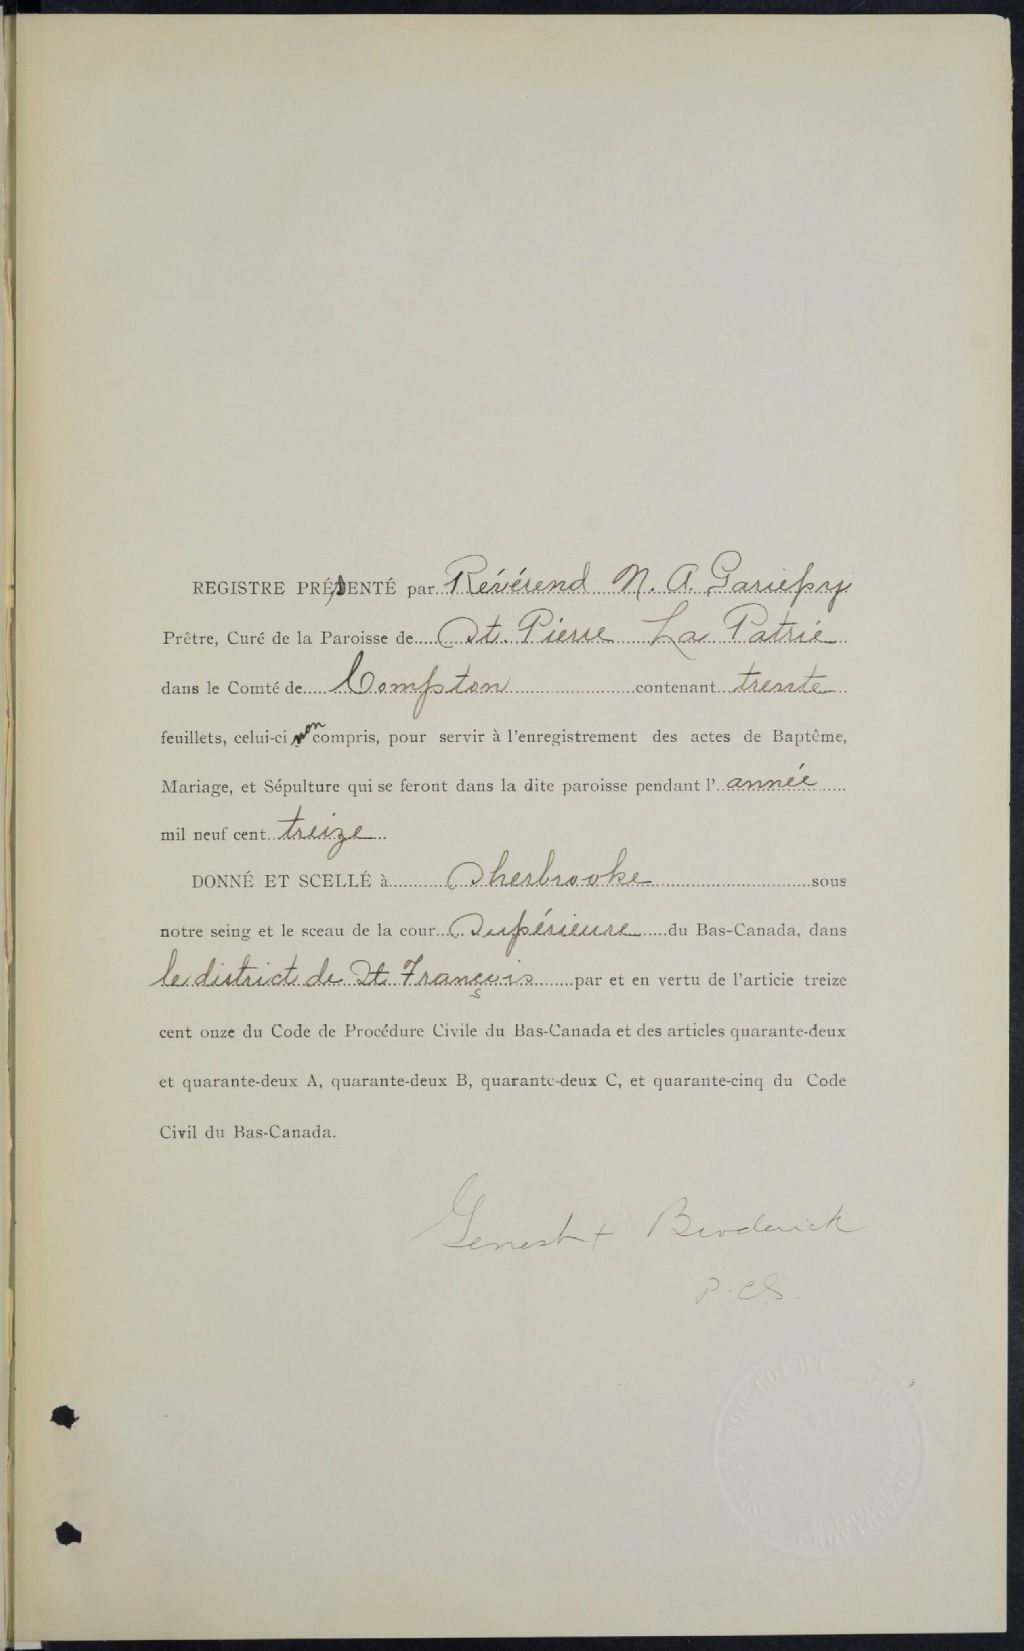 REGISTRE PRÉSENTÉ par Révérend N. A. Gariepy
Prêtre, Curé de la Paroisse de St. Pierre La Patrie
dans le Comté de Compton contenant trente
feuillets, celui-ci non compris, pour servir à l'enregistrement des actes de Baptême,
Mariage, et Sépulture qui se feront dans la dite paroisse pendant l' année
mil neuf cent treize
DONNÉ ET SCELLÉ à Sherbrooke sous
notre seing et le sceau de la cour Supérieure du Bas-Canada, dans
le district de St. François par et en vertu de l'articie treize
cent onze du Code de Procédure Civile du Bas-Canada et des articles quarante-deux
et quarante-deux A, quarante-deux B, quarante-deux C, et quarante-cinq du Code
Civil du Bas-Canada.
Genest + Broderick
P. CS.
SUPERIOR COURT
PROVINCE OF